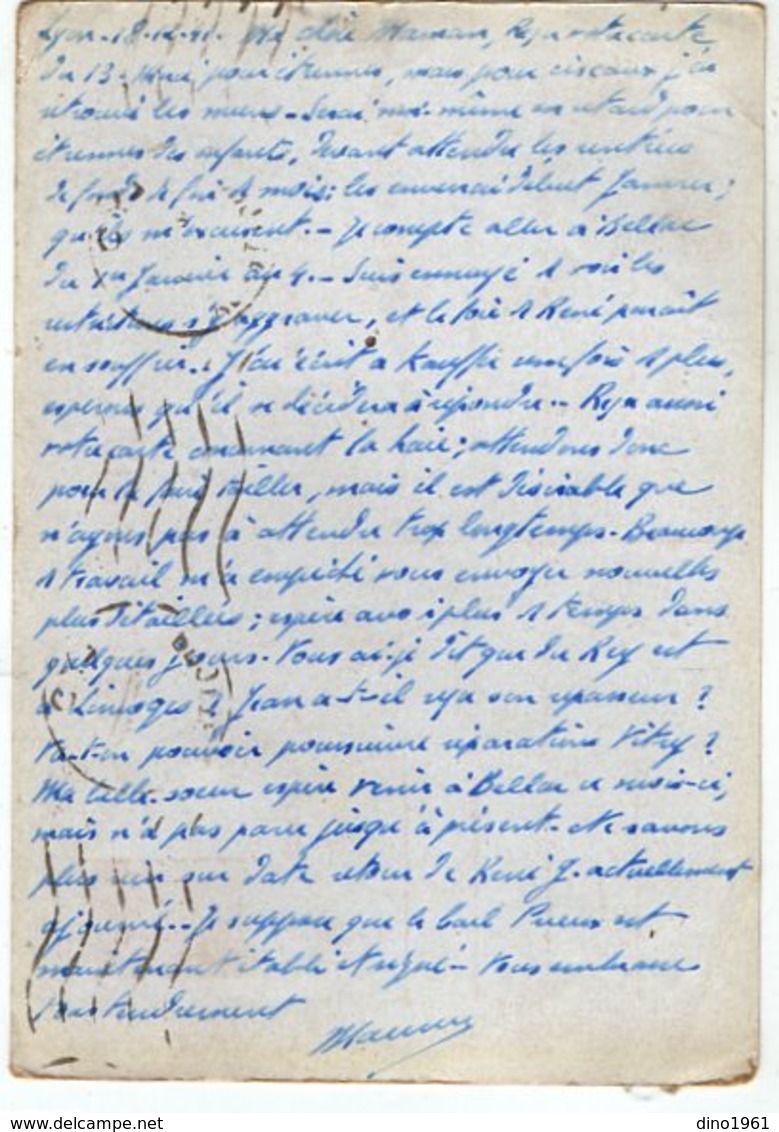 Lyon - 18-12-41 - Ma chère Maman, Reçu votre carte
du 13 - Merci pour étrennes, mais pour ciseaux j'ai
retrouvé les miens - Serai moi-même en retard pour
étrennes des enfants, devant attendre les rentrées
de fonds de fin de mois; les enverrai début Janvier;
qu'ils m'excusent. - Je compte aller à Bellac
du 1er Janvier au 4. - Suis ennuyé de voir les
restrictions s'aggraver, et le foie de René paraît
en souffrir. J'ai écrit à une fois de plus,
espérons qu'il se décidera à répondre. - Reçu aussi
votre carte concernant la haie; attendons donc
pour la faire tailler, mais il est désirable que
n'ayons pas à attendre trop longtemps - Beaucoup
de travail m'a empêché vous envoyer nouvelles
plus détaillées; espère avoir plus de temps dans
quelques jours - Vous ai-je dit que du Rey est
à Limoges? Jean a-t-il reçu son repasseur?
Va-t-on pouvoir poursuivre réparations Vitry?
Ma belle-soeur espère venir à Bellac ce mois-ci,
mais n'a pas passé jusqu'à présent - Ne savons
plus rien sur date retour de René J. actuellement
ajourné. - Je suppose que le bail est
maintenant établi et signé - Vous embrasse
tous tendrement
dino1961